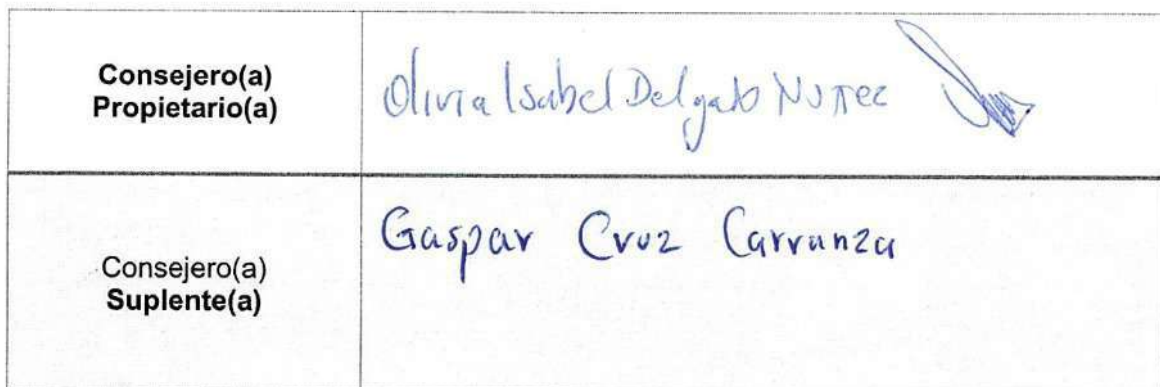 Consejero(a)
Propietario(a)
Olivia Isabel Delgado Nuñez
Consejero(a)
Suplente(a)
Gaspar Cruz Carranza